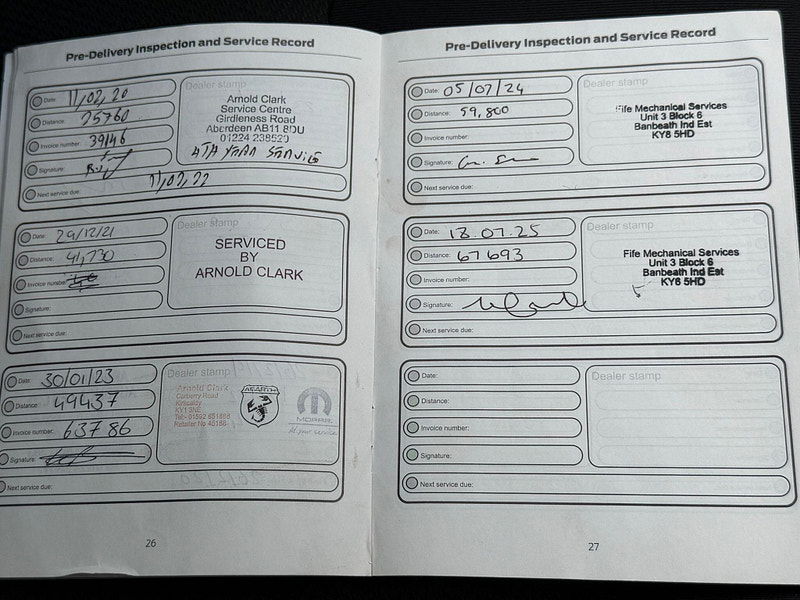 Pre-Delivery Inspection and Service Record
Date: 11,02,20
Distance: 25760
Invoice number: 39146
Signature:
Next service due: 11,02,22
Dealer stamp
Arnold Clark
Service Centre
Girdleness Road
Aberdeen AB11 8DU
01224 238520
4TH YEAR SERVICE
Date: 29/12/21
Distance: 41,730
Invoice number:
Signature:
Next service due:
Dealer stamp
SERVICED
BY
ARNOLD CLARK
Date: 30/01/23
Distance: 49437
Invoice number: 63786
Signature:
Next service due:
Dealer stamp
Arnold Clark
Carberry Road
Kirkcaldy
KY1 3NE
Tel:- 01592 651888
Retailer No 45168
ABARTH
MOPAR
At your service
26
Pre-Delivery Inspection and Service Record
Date: 05/07/24
Distance: 59,800
Invoice number:
Signature:
Next service due:
Dealer stamp
Fife Mechanical Services
Unit 3 Block 6
Banbeath Ind Est
KY8 5HD
Date: 18.07.25
Distance: 67693
Invoice number:
Signature:
Next service due:
Dealer stamp
Fife Mechanical Services
Unit 3 Block 6
Banbeath Ind Est
KY8 5HD
Date:
Distance:
Invoice number:
Signature:
Next service due:
Dealer stamp
27